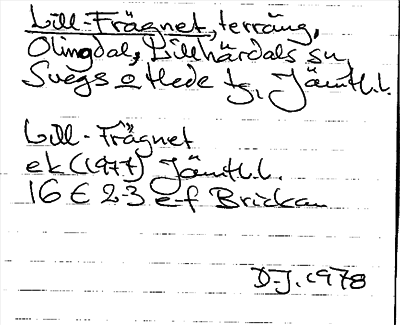 Lill-Frägnet, terräng,
Olingdal, Lillhärdals sn,
Svegs o Hede tg, Jämtl.l.
Lill-Frägnet
ek (1977) Jämtl.l.
16 E 2-3 e-f Brickan
D-J. 1978